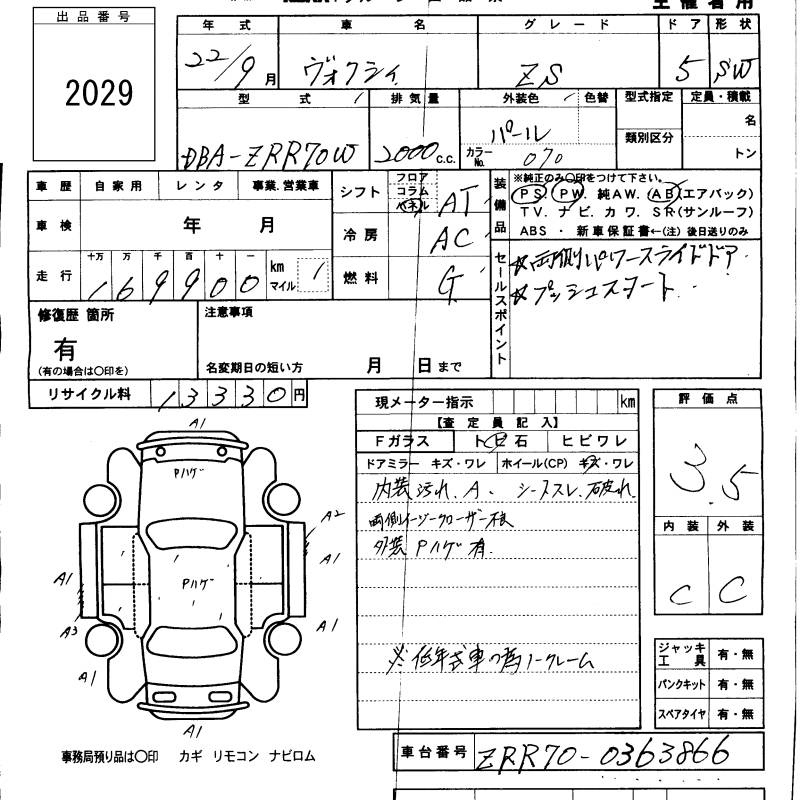 出品番号
2029
年式 車名 グレード ドア 形状
22/9月 ヴォクシィ ZS 5 SW
型式 排気量 外装色 色替 型式指定 定員・積載
DBA-ZRR70W 2000c.c. パール 名
カラーNo. 070 類別区分 トン
車歴 自家用 レンタ 事業.営業車
車検 年 月
走行 十万 万 千 百 十 一 km マイル
169900
シフト フロア コラム パネル AT
冷房 AC
燃料 G
装備品
※純正のみ〇印をつけて下さい。
PS. PW. 純AW. AB(エアバック)
TV. ナビ. カワ. SR(サンルーフ)
ABS ・ 新車保証書←(注)後日送りのみ
セールスポイント
☆両側パワースライドドア
☆プッシュスタート
修復歴 箇所
有
(有の場合は〇印を)
注意事項
名変期日の短い方 月 日まで
リサイクル料 13330円
現メーター指示 km
【査定員記入】
Fガラス トビ石 ヒビワレ
ドアミラー キズ・ワレ ホイール(CP) キズ・ワレ
内装汚れ、A、シートスレ、破れ
両側イージークローザー不良
外装Pハゲ有
※低年式車の為ノークレーム
評価点
3.5
内装 外装
C C
A1
Pハゲ
A2
A1
A1
Pハゲ
A3
A1
A1
A1
ジャッキ工具 有・無
パンクキット 有・無
スペアタイヤ 有・無
事務局預り品は〇印 カギ リモコン ナビロム
車台番号 ZRR70-0363866